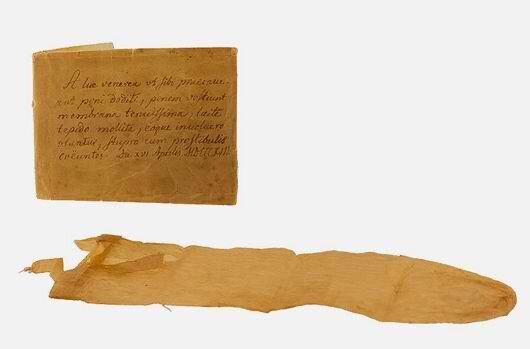 A lue venerea ut sibi praecave-
ant peni dediti, penem vestiunt
membrana tenuissima, lacte
tepido mollita, eoque involucro
utuntur, stupro cum prostibulis
coëuntes. Da XVI Aprilis